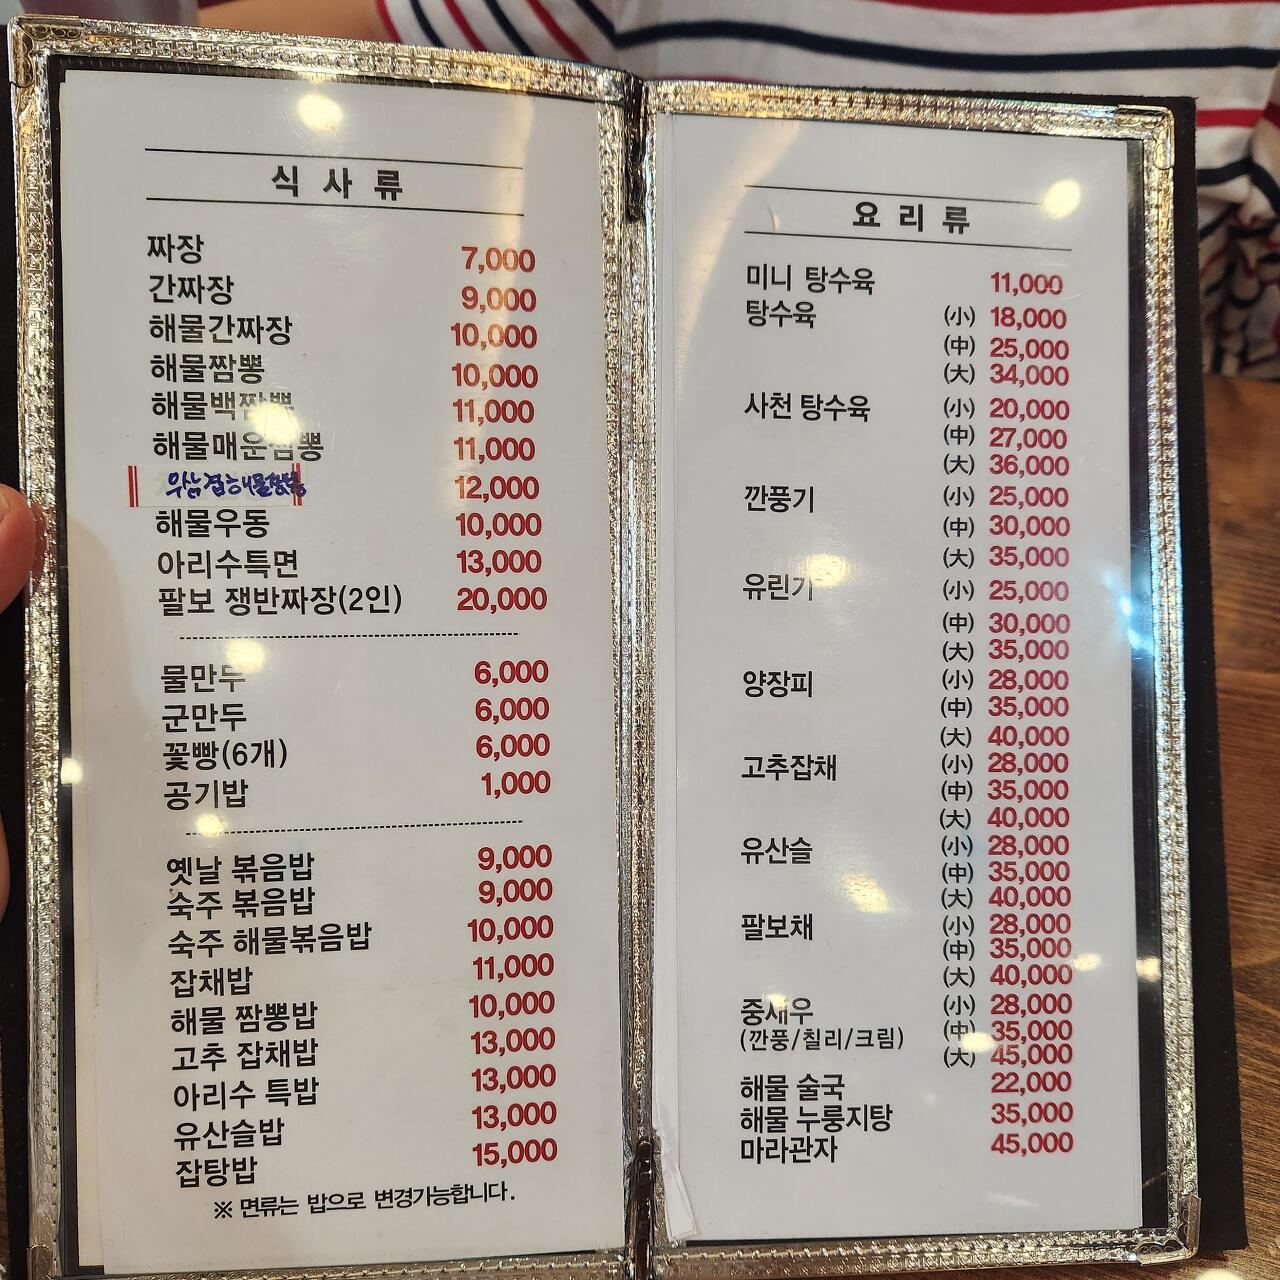 식 사 류
짜장 7,000
간짜장 9,000
해물간짜장 10,000
해물짬뽕 10,000
해물백짬뽕 11,000
해물매운짬뽕 11,000
우삼겹해물짬뽕 12,000
해물우동 10,000
아리수특면 13,000
팔보 쟁반짜장(2인) 20,000
물만두 6,000
군만두 6,000
꽃빵(6개) 6,000
공기밥 1,000
옛날 볶음밥 9,000
숙주 볶음밥 9,000
숙주 해물볶음밥 10,000
잡채밥 11,000
해물 짬뽕밥 10,000
고추 잡채밥 13,000
아리수 특밥 13,000
유산슬밥 13,000
잡탕밥 15,000
※ 면류는 밥으로 변경가능합니다.
요 리 류
미니 탕수육 11,000
탕수육 (小) 18,000
(中) 25,000
(大) 34,000
사천 탕수육 (小) 20,000
(中) 27,000
(大) 36,000
깐풍기 (小) 25,000
(中) 30,000
(大) 35,000
유린기 (小) 25,000
(中) 30,000
(大) 35,000
양장피 (小) 28,000
(中) 35,000
(大) 40,000
고추잡채 (小) 28,000
(中) 35,000
(大) 40,000
유산슬 (小) 28,000
(中) 35,000
(大) 40,000
팔보채 (小) 28,000
(中) 35,000
(大) 40,000
중새우 (小) 28,000
(깐풍/칠리/크림) (中) 35,000
(大) 45,000
해물 술국 22,000
해물 누룽지탕 35,000
마라관자 45,000